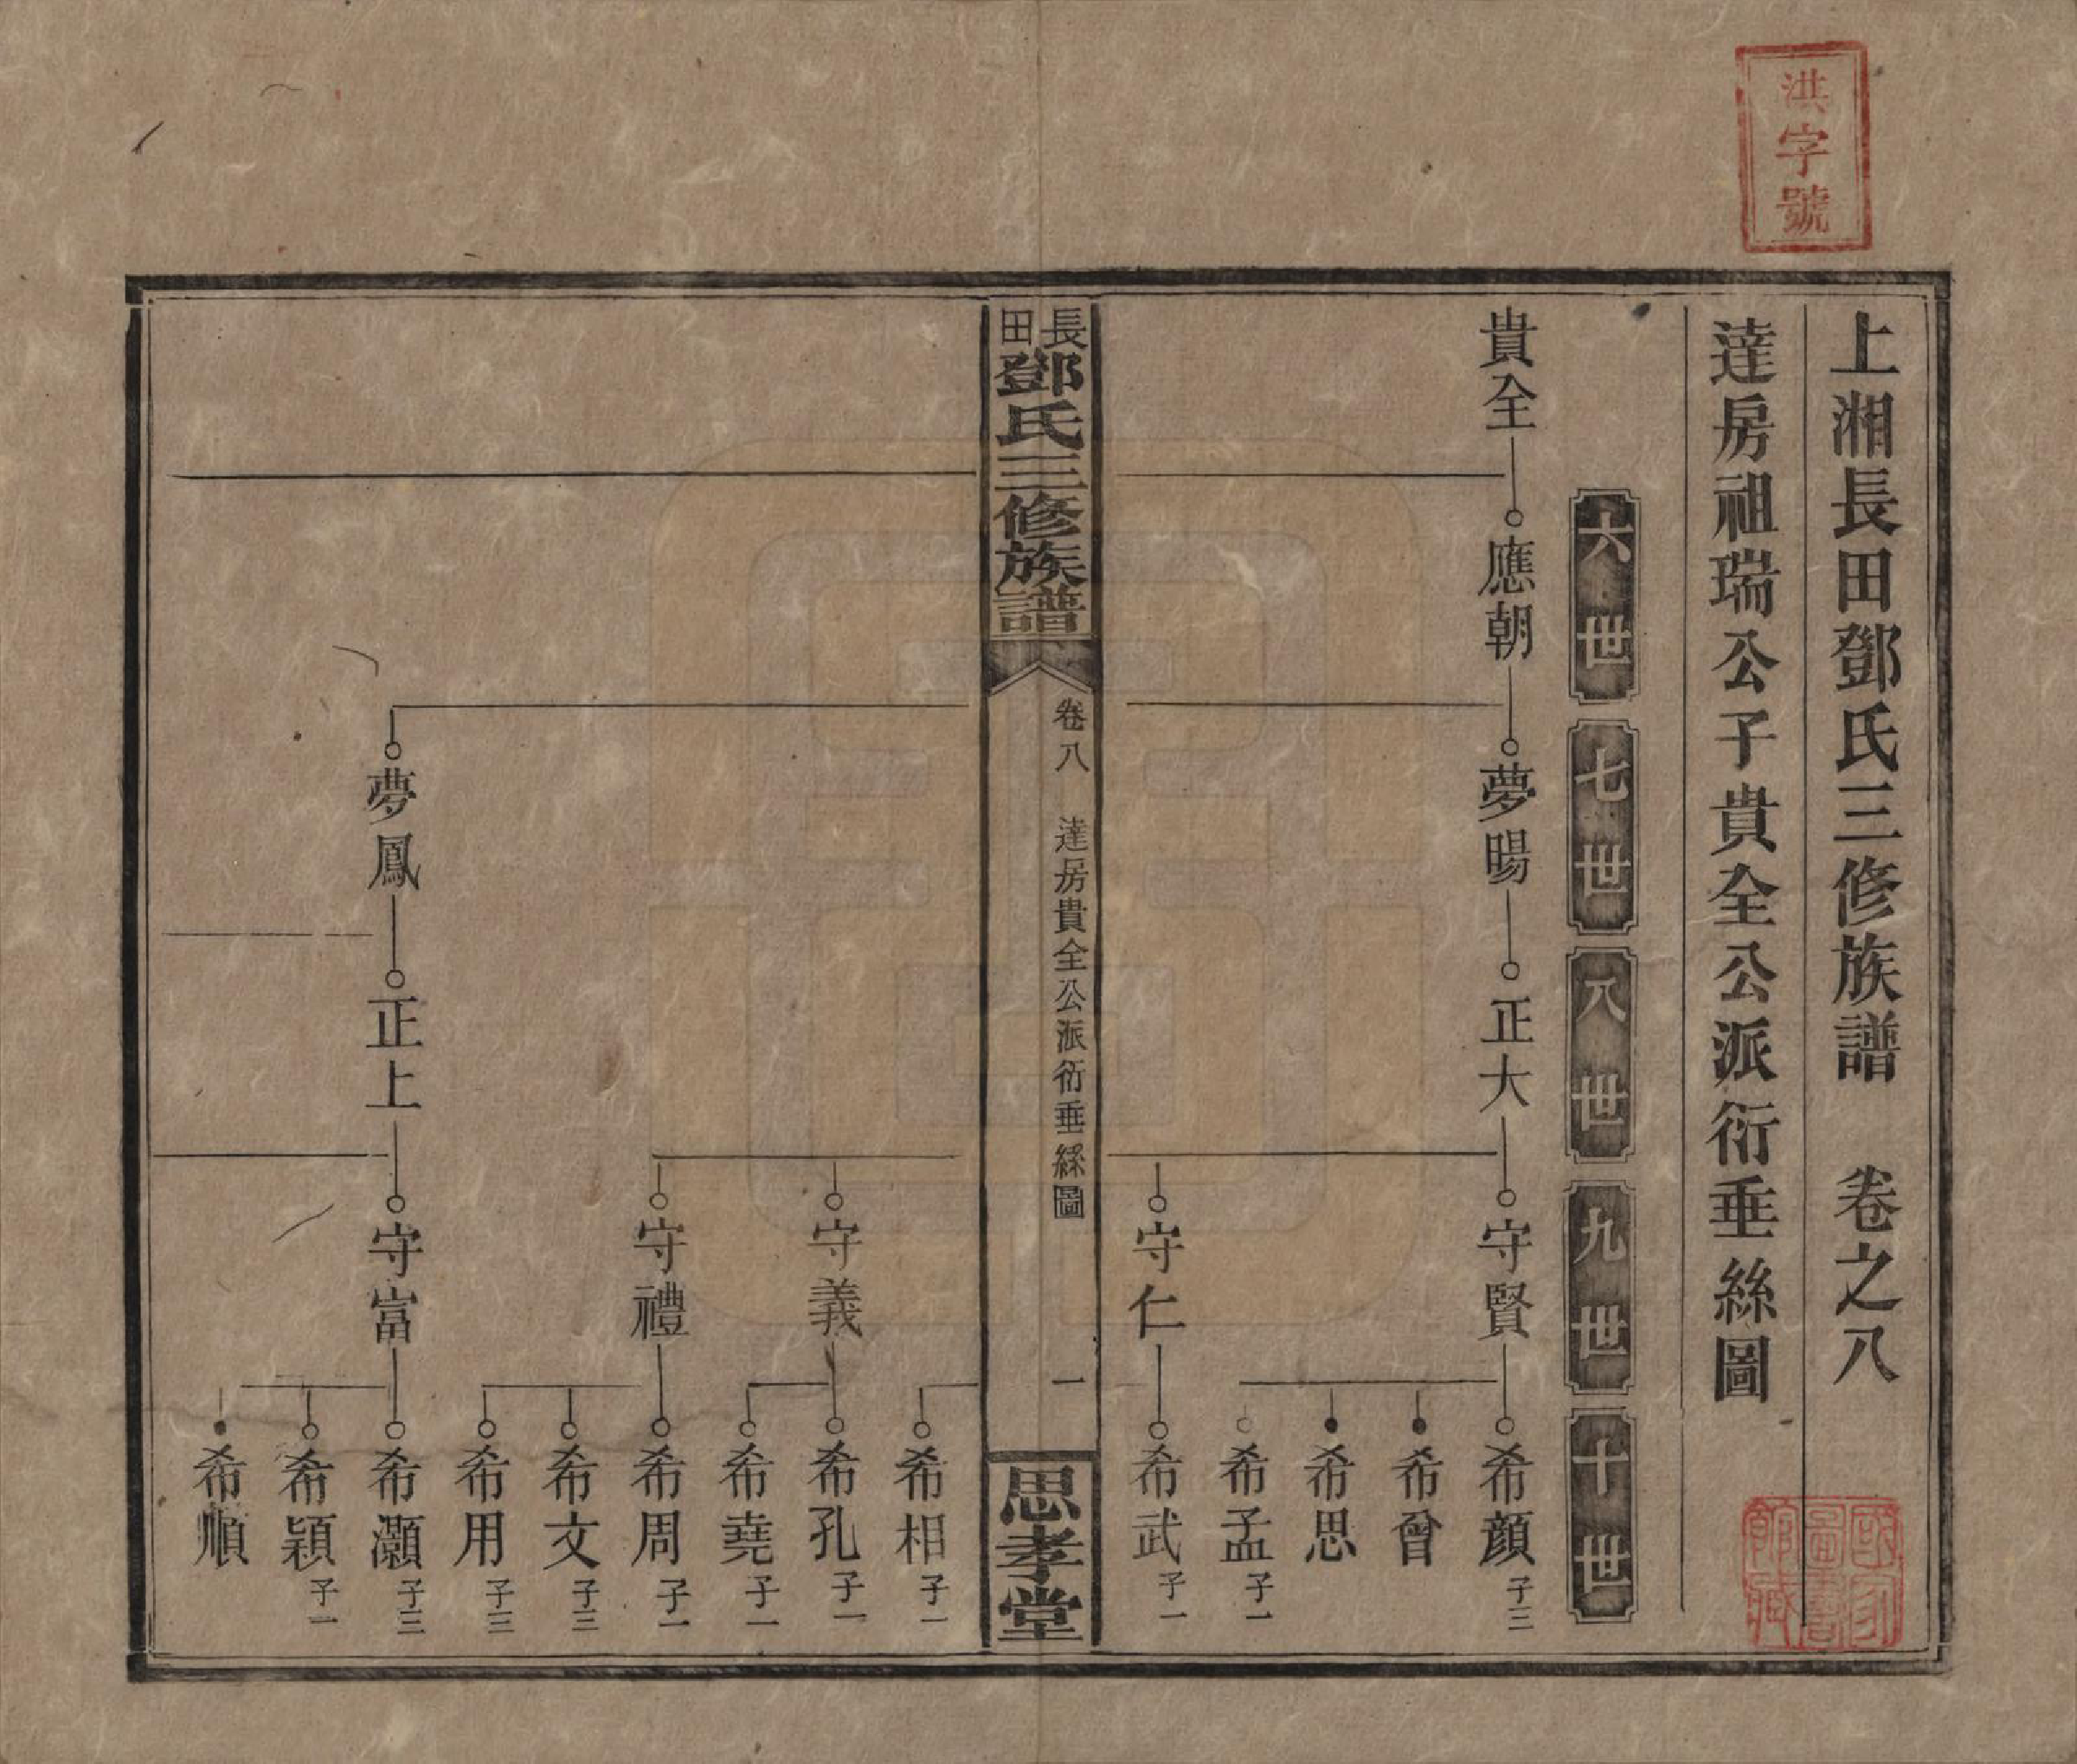 洪字號
上湘長田鄧氏三修族譜　卷之八
達房祖瑞公子貴全公派衍垂絲圖
六世
七世
八世
九世
十世
貴全
應朝
夢暘
正大
守賢
希顏 子三
希曾
希思
希孟 子一
守仁
希武 子一
長田鄧氏三修族譜
卷八　達房貴全公派衍垂綵圖
一
思孝堂
希相 子一
守義
希孔 子一
希堯 子一
守禮
希周 子一
希文 子三
希用 子三
夢鳳
正上
守富
希灝 子三
希穎 子一
希順
國家圖書館藏